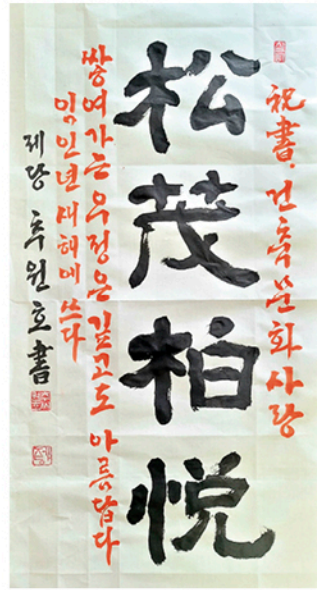 祝書. 건축문화사랑
松茂柏悅
쌓여가는 우정은 깊고도 아름답다
임인년 새해에 쓰다
체당 추원호 書